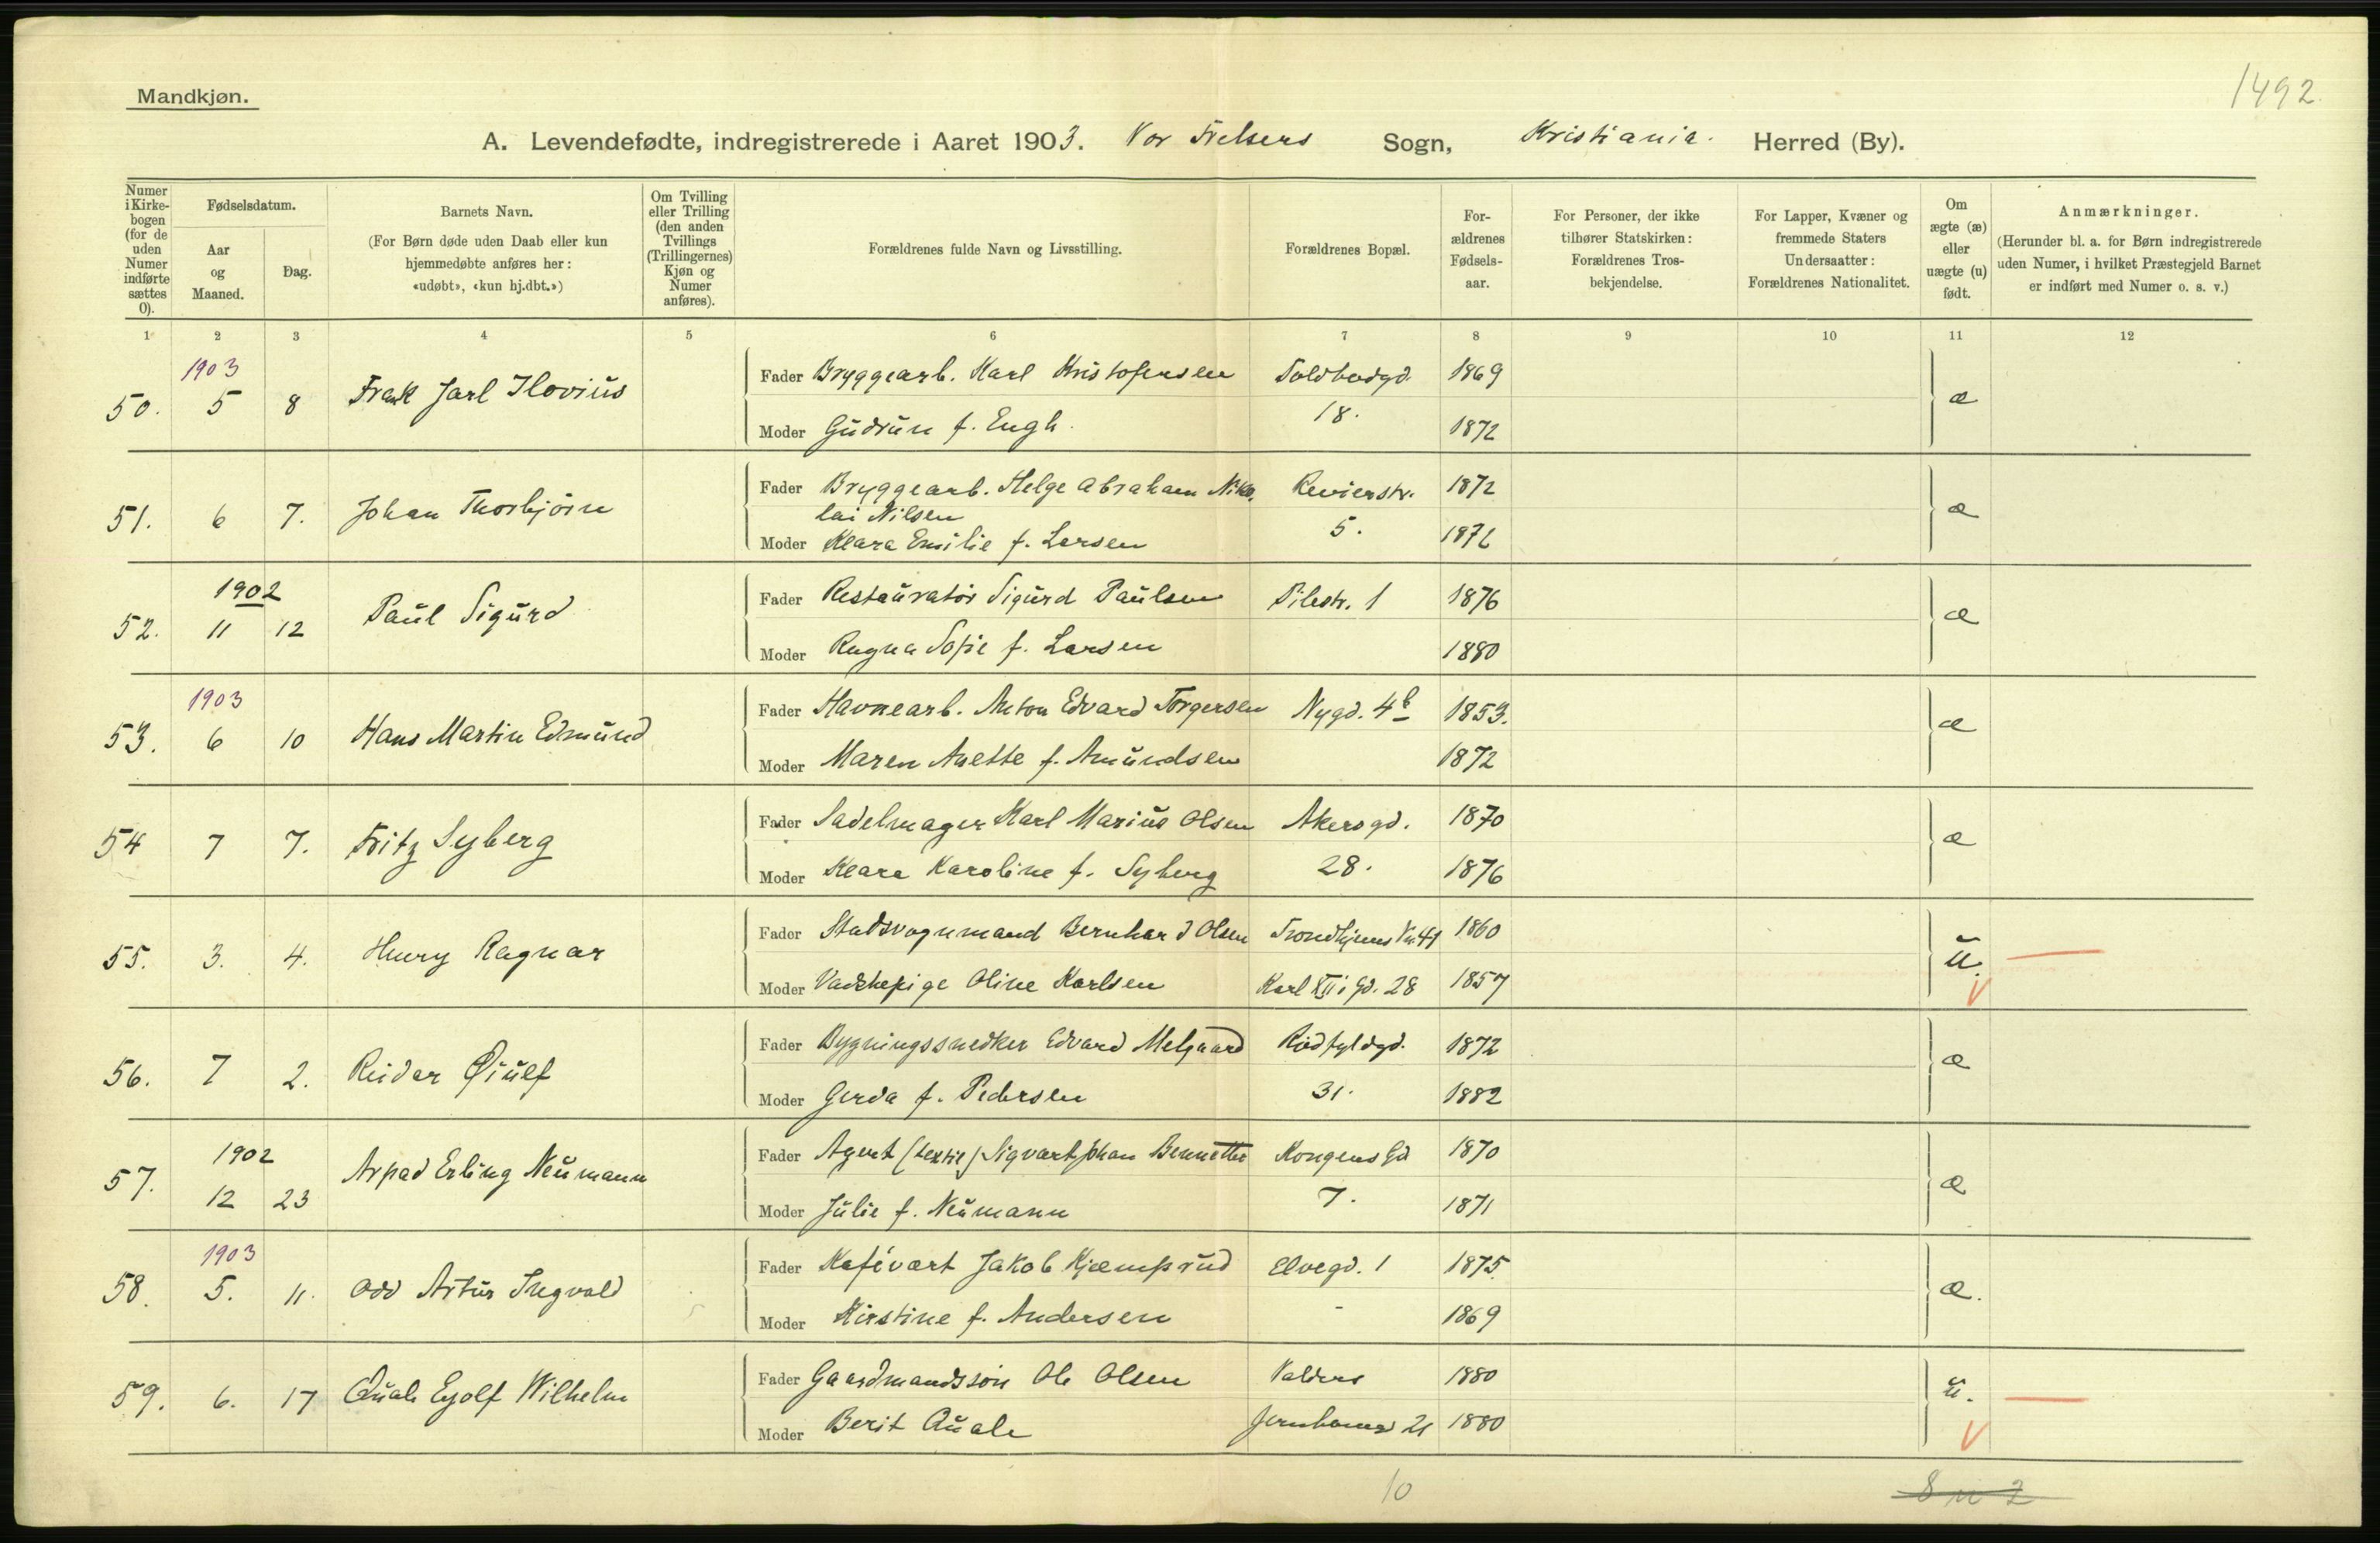 1492
Mandkjøn.
A. Levendefødte, indregistrerede i Aaret 1903. Vor Frelsers Sogn, Kristiania. Herred (By).
Numer i Kirkebogen (for de uden Numer indførte sættes 0).
Fødselsdatum.
Aar og Maaned.
Dag.
Barnets Navn.
(For Børn døde uden Daab eller kun hjemmedøbte anføres her: «udøbt», «kun hj.dbt.»)
Om Tvilling eller Trilling (den anden Tvillings (Trillingernes) Kjøn og Numer anføres).
Forældrenes fulde Navn og Livsstilling.
Forældrenes Bopæl.
Forældrenes Fødselsaar.
For Personer, der ikke tilhører Statskirken: Forældrenes Trosbekjendelse.
For Lapper, Kvæner og fremmede Staters Undersaatter: Forældrenes Nationalitet.
Om ægte (æ) eller uægte (u) født.
Anmærkninger.
(Herunder bl. a. for Børn indregistrerede uden Numer, i hvilket Præstegjeld Barnet er indført med Numer o. s. v.)
1 2 3 4 5 6 7 8 9 10 11 12
1903
50. 5 8 Frank Jarl Ilovius Fader Bryggearb. Karl Kristofersen Toldbodgd. 1869 æ
Moder Gudrun f. Engh. 18. 1872
51. 6 7. Johan Thorbjørn Fader Bryggearb. Helge Abraham Niko- Revierstr. 1872 æ
lai Nilsen 5.
Moder Klara Emilie f. Larsen
1902
52. 11 12 Paul Sigurd Fader Restauratør Sigurd Paulsen Pilestr. 1 1876 æ
Moder Ragna Sofie f. Larsen 1880
1903
53. 6 10 Hans Martin Edmund Fader Havnearb. Anton Edvard Torgersen Nygd. 4b 1853. æ
Moder Maren Anette f. Amundsen 1872
54 7 7. Fritz Syberg Fader Sadelmager Karl Marius Olsen Akersgd. 1870 æ
Moder Klara Karoline f. Syberg 28. 1876
55. 3. 4. Henry Ragnar Fader Stadsvognmand Bernhard Olsen Trondhjems Vn. 41 1860 u.
Moder Vadskepige Oline Karlsen Karl XII's Gd. 28 1857
56. 7 2. Reidar Øiulf Fader Bygningssnedker Edvard Melgaard Rødfyldgd. 1872 æ
Moder Gerda f. Pedersen 31. 1882
1902
57. 12 23 Arpad Erling Neumann Fader Agent Sigvart Johan Bennetter Kongens Gd 1870 æ
Moder Julie f. Neumann 7. 1871
1903
58. 5. 11. Odd Artur Ingvald Fader Kafévært Jakob Kjæmperud Elvegd. 1 1875. æ.
Moder Kirstine f. Andersen - 1869
59. 6. 17 Quale Eyolf Wilhelm Fader Gaardmandssøn Ole Olsen Valders 1880 u.
Moder Berit Quale 1880
10
8 u 2